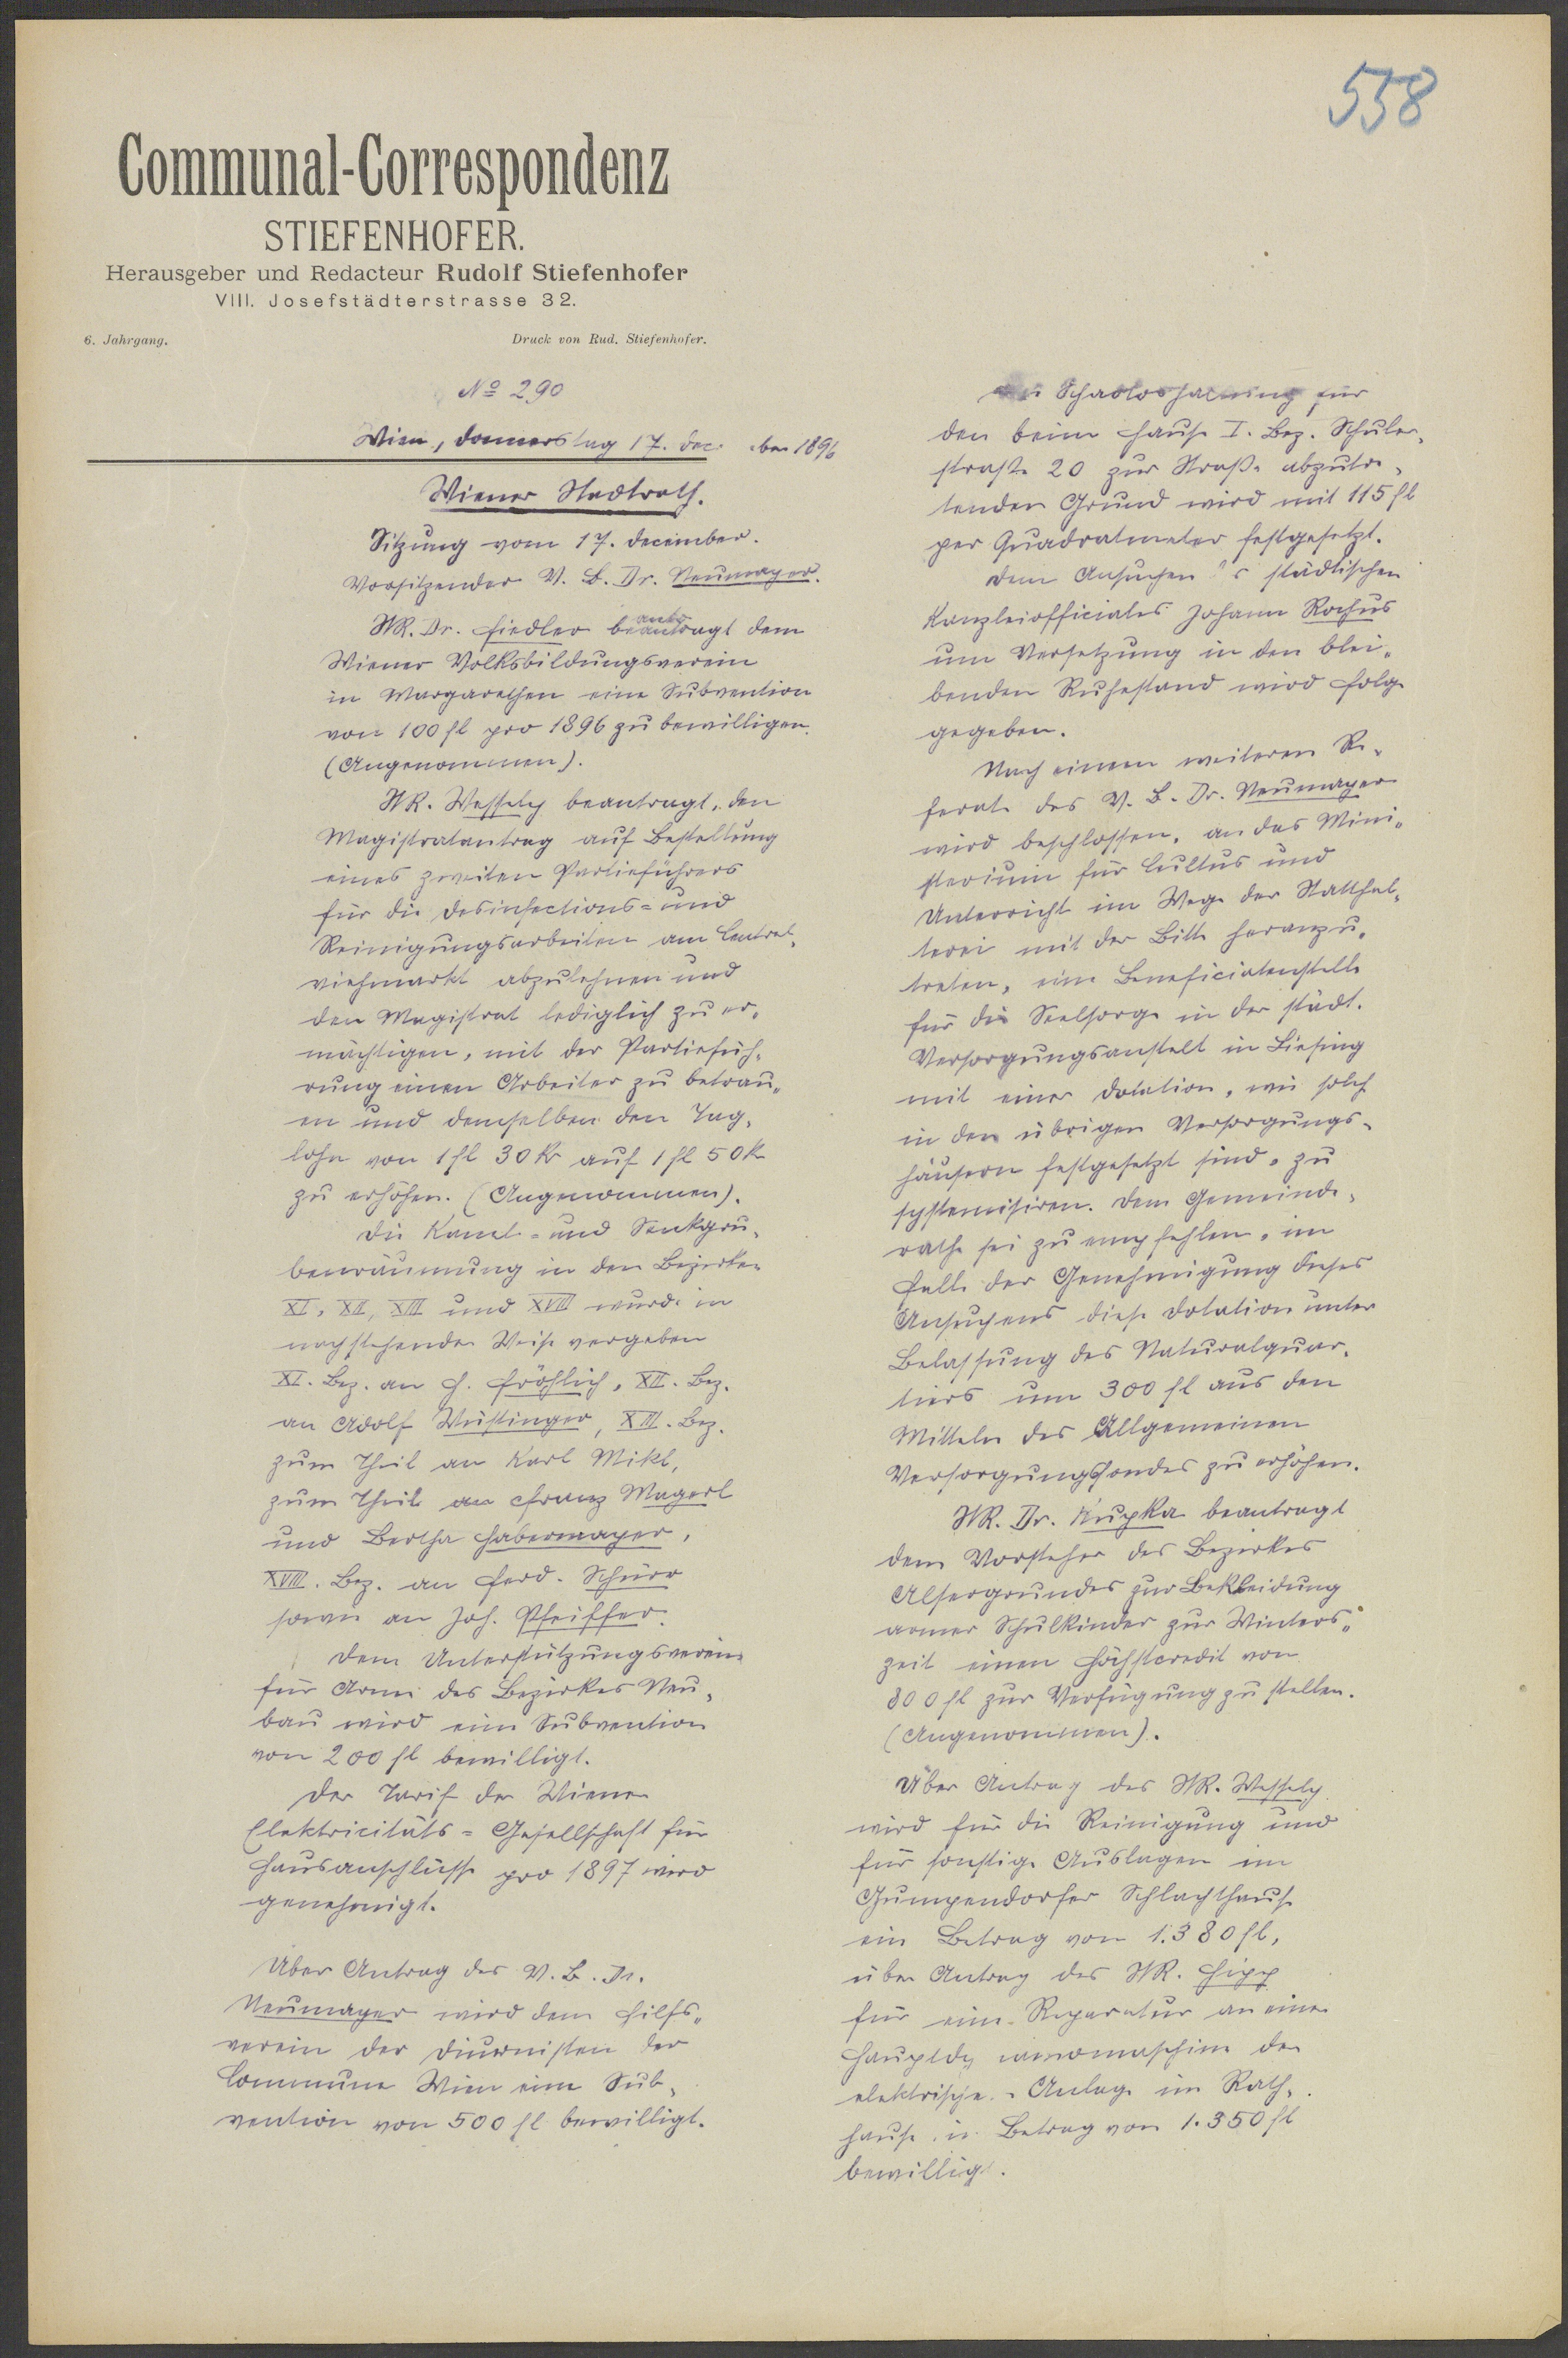 558
Communal-Correspondenz
STIEFENHOFER.
Herausgeber und Redacteur Rudolf Stiefenhofer
VIII. Josefstädterstrasse 32.
6. Jahrgang. Druck von Rud. Stiefenhofer.
No 290
Wien, Donnerstag 17. Dec ber 1896
Wiener Stadtrath.
Sitzung vom 17. December.
Vorsitzender V. B. Dr. Neumayer.
StR. Dr. Fiedler beantragt dem
Wiener Volksbildungsverein
in Margarethen eine Subvention
von 100 fl pro 1896 zu bewilligen.
(Angenommen).
StR. Wessely beantragt, den
Magistratantrag auf Bestellung
eines zweiten Partieführers
für die Desinfections- und
Reinigungsarbeiten am Central-
viehmarkt abzulehnen und
den Magistrat lediglich zu er-
mächtigen, mit der Partiefüh-
rung einen Arbeiter zu betrau-
en und demselben den Tag-
lohn von 1 fl 30 kr auf 1 fl 50 kr
zu erhöhen. (Angenommen).
Die Kanal- und Senkgru-
benräumung in den Bezirken
XI, XII, XIII und XVIII wurde in
nachstehender Weise vergeben
XI. Bez. an H. Fröhlich, XII. Bez.
an Adolf Wüstinger, XIII. Bez.
zum Theil an Karl Mikl,
zum Theile an Franz Magerl
und Bertha Habermayer,
XVIII. Bez. an Ferd. Schürr
sowie an Joh. Pfeiffer.
Dem Unterstützungsverein
für Arme des Bezirkes Neu-
bau wird eine Subvention
von 200 fl bewilligt.
Der Tarif der Wiener
Elektricitäts-Gesellschaft für
Hausanschlüsse pro 1897 wird
genehmigt.
Über Antrag des V. B. Dr.
Neumayer wird dem Hilfs-
verein der Diurnisten der
Commune Wien eine Sub-
vention von 500 fl bewilligt.
Schadloshaltung für
den beim Hause I. Bez. Schuler-
straße 20 zur Straße abzutre-
tenden Grund wird mit 115 fl
per Quadratmeter festgesetzt.
Dem Ansuchen s städtischen
Kanzleiofficiales Johann Rochus
um Versetzung in den blei-
benden Ruhestand wird Folge
gegeben.
Nach einem weiteren Re-
ferate des V. B. Dr. Neumayer
wird beschlossen, an das Mini-
sterium für Cultus und
Unterricht im Wege der Statthal-
terei mit der Bitte heranzu-
treten, eine Beneficiatenstelle
für die Seelsorge in der städt.
Versorgungsanstalt in Liesing
mit einer Dotation, wie solche
in den übrigen Versorgungs-
häusern festgesetzt sind, zu
systemisiren. Dem Gemeinde-
rathe sei zu empfehlen, im
Falle der Genehmigung dieses
Ansuchens diese Dotation unter
Belassung des Naturalquar-
tiers um 300 fl aus den
Mitteln des Allgemeinen
Versorgungsfondes zu erhöhen.
StR. Dr. Krupka beantragt
dem Vorsteher des Bezirkes
Alsergrundes zur Bekleidung
armer Schulkinder zur Winters-
zeit einen Höchstcredit von
800 fl zur Verfügung zu stellen.
(Angenommen).
Über Antrag des StR. Wessely
wird für die Reinigung und
für sonstige Auslagen im
Gumpendorfer Schlachthause
ein Betrag von 1.380 fl,
über Antrag des StR. Hipp
für eine Reparatur an einer
Hauptdy namomaschine der
elektrische Anlage im Rath-
hause Betrag von 1.350 fl
bewilligt.